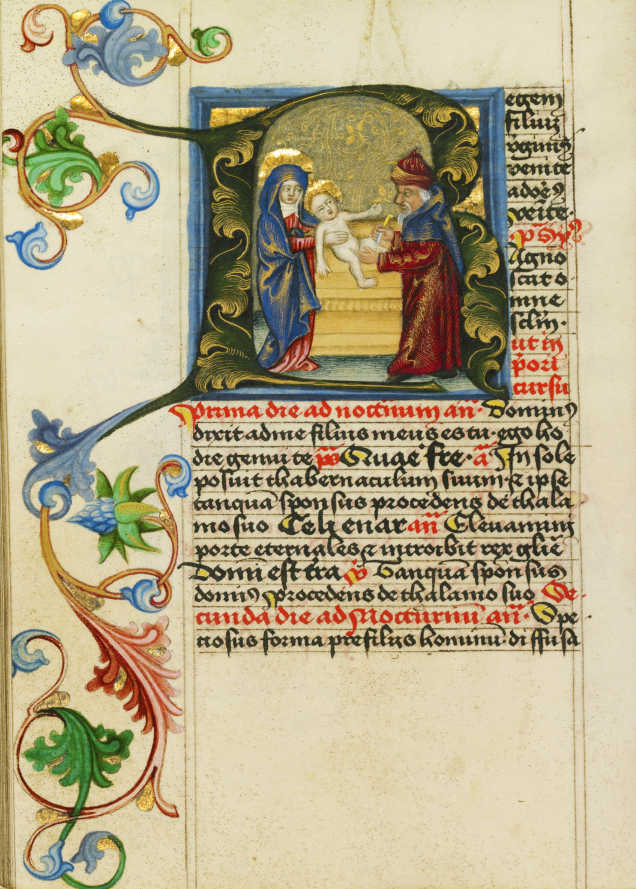 egem
filiū
v̄ginis
venite
adorē
veīte.
Agno
scat o
mne
sclm̄.
ut in
p̄ori
cursu
Prima die ad nocturnum an̄. Dominus
dixit ad me filius meus es tu. ego ho
die genui te ps̄ Quae fre. a In sole
posuit thabernaculum suum. & ipse
tanquā sponsus procedens de thala
mo suo Celi enar an̄ Elevamini
porte eternales & introibit rex glīe
Domi est tra Tanquā sponsus
domin9 procedens de thalamo suo Se
cunda die ad Nocturnū an̄. Spe
ciosus forma pre filijs hominū diffusa